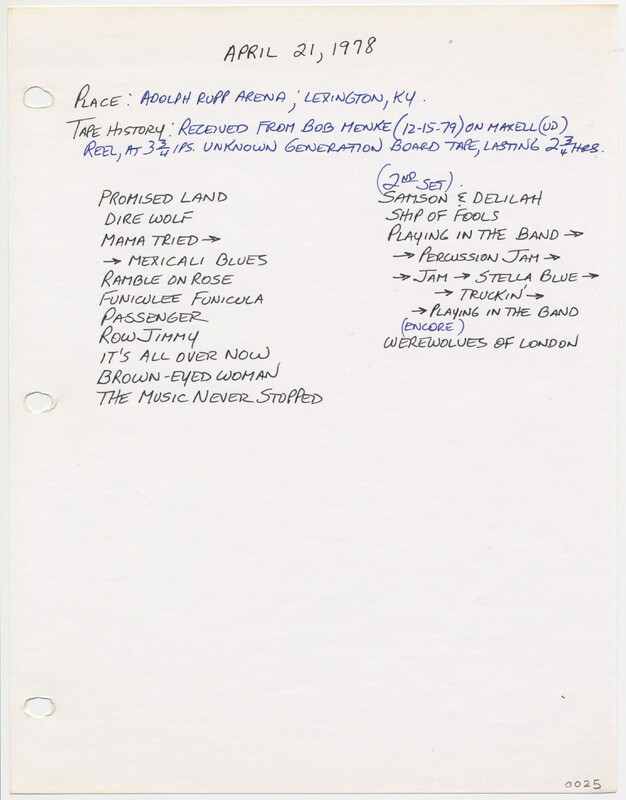 APRIL 21, 1978
PLACE: ADOLPH RUPP ARENA; LEXINGTON, KY.
TAPE HISTORY: RECEIVED FROM BOB MENKE (12-15-79) ON MAXELL (UD)
REEL, AT 3 3/4 IPS. UNKNOWN GENERATION BOARD TAPE, LASTING 2 3/4 HRS.
PROMISED LAND
DIRE WOLF
MAMA TRIED →
→ MEXICALI BLUES
RAMBLE ON ROSE
FUNICULEE FUNICULA
PASSENGER
ROW JIMMY
IT'S ALL OVER NOW
BROWN-EYED WOMAN
THE MUSIC NEVER STOPPED
(2ND SET).
SAMSON & DELILAH
SHIP OF FOOLS
PLAYING IN THE BAND →
→ PERCUSSION JAM →
→ JAM → STELLA BLUE →
→ TRUCKIN' →
→ PLAYING IN THE BAND
(ENCORE)
WEREWOLVES OF LONDON
0025